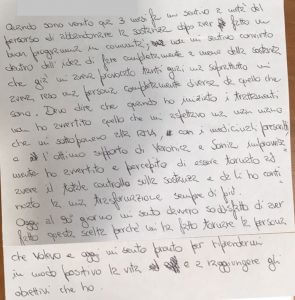 Quando sono venuto qui 3 mesi fa mi sentivo a metà del
percorso di abbandonare la sostanza dopo aver fatto un
buon programma in comunità, mi sentivo convinto
dentro dell'idea di fare completamente a meno della sostanza
che già mi aveva provocato tanti guai ma soprattutto mi
aveva reso una persona completamente diversa da quello che
sono. Devo dire che quando ho iniziato i trattamenti
non ho avvertito quello che mi aspettavo ma man mano
che mi sottoponevo alla con i medicinali
e l'ottimo supporto di Veronica e Sonia
mente ho avvertito e percepito di essere tornato ad
avere il totale controllo sulla sostanza e da lì ho conti
nuato la mia trasformazione sempre di più.
Oggi al 90° giorno mi sento davvero soddisfatto di aver
fatto questa scelta perché mi ha fatto tornare la persona
che volevo e oggi mi sento pronto per riprendermi
in modo positivo la vita e a raggiungere gli
obiettivi che ho.